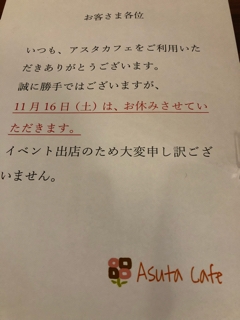 お客さま各位
いつも、アスタカフェをご利用いた
だきありがとうございます。
誠に勝手ではございますが、
11月16日(土)は、お休みさせてい
ただきます。
イベント出店のため大変申し訳ござ
いません。
Asuta Cafe